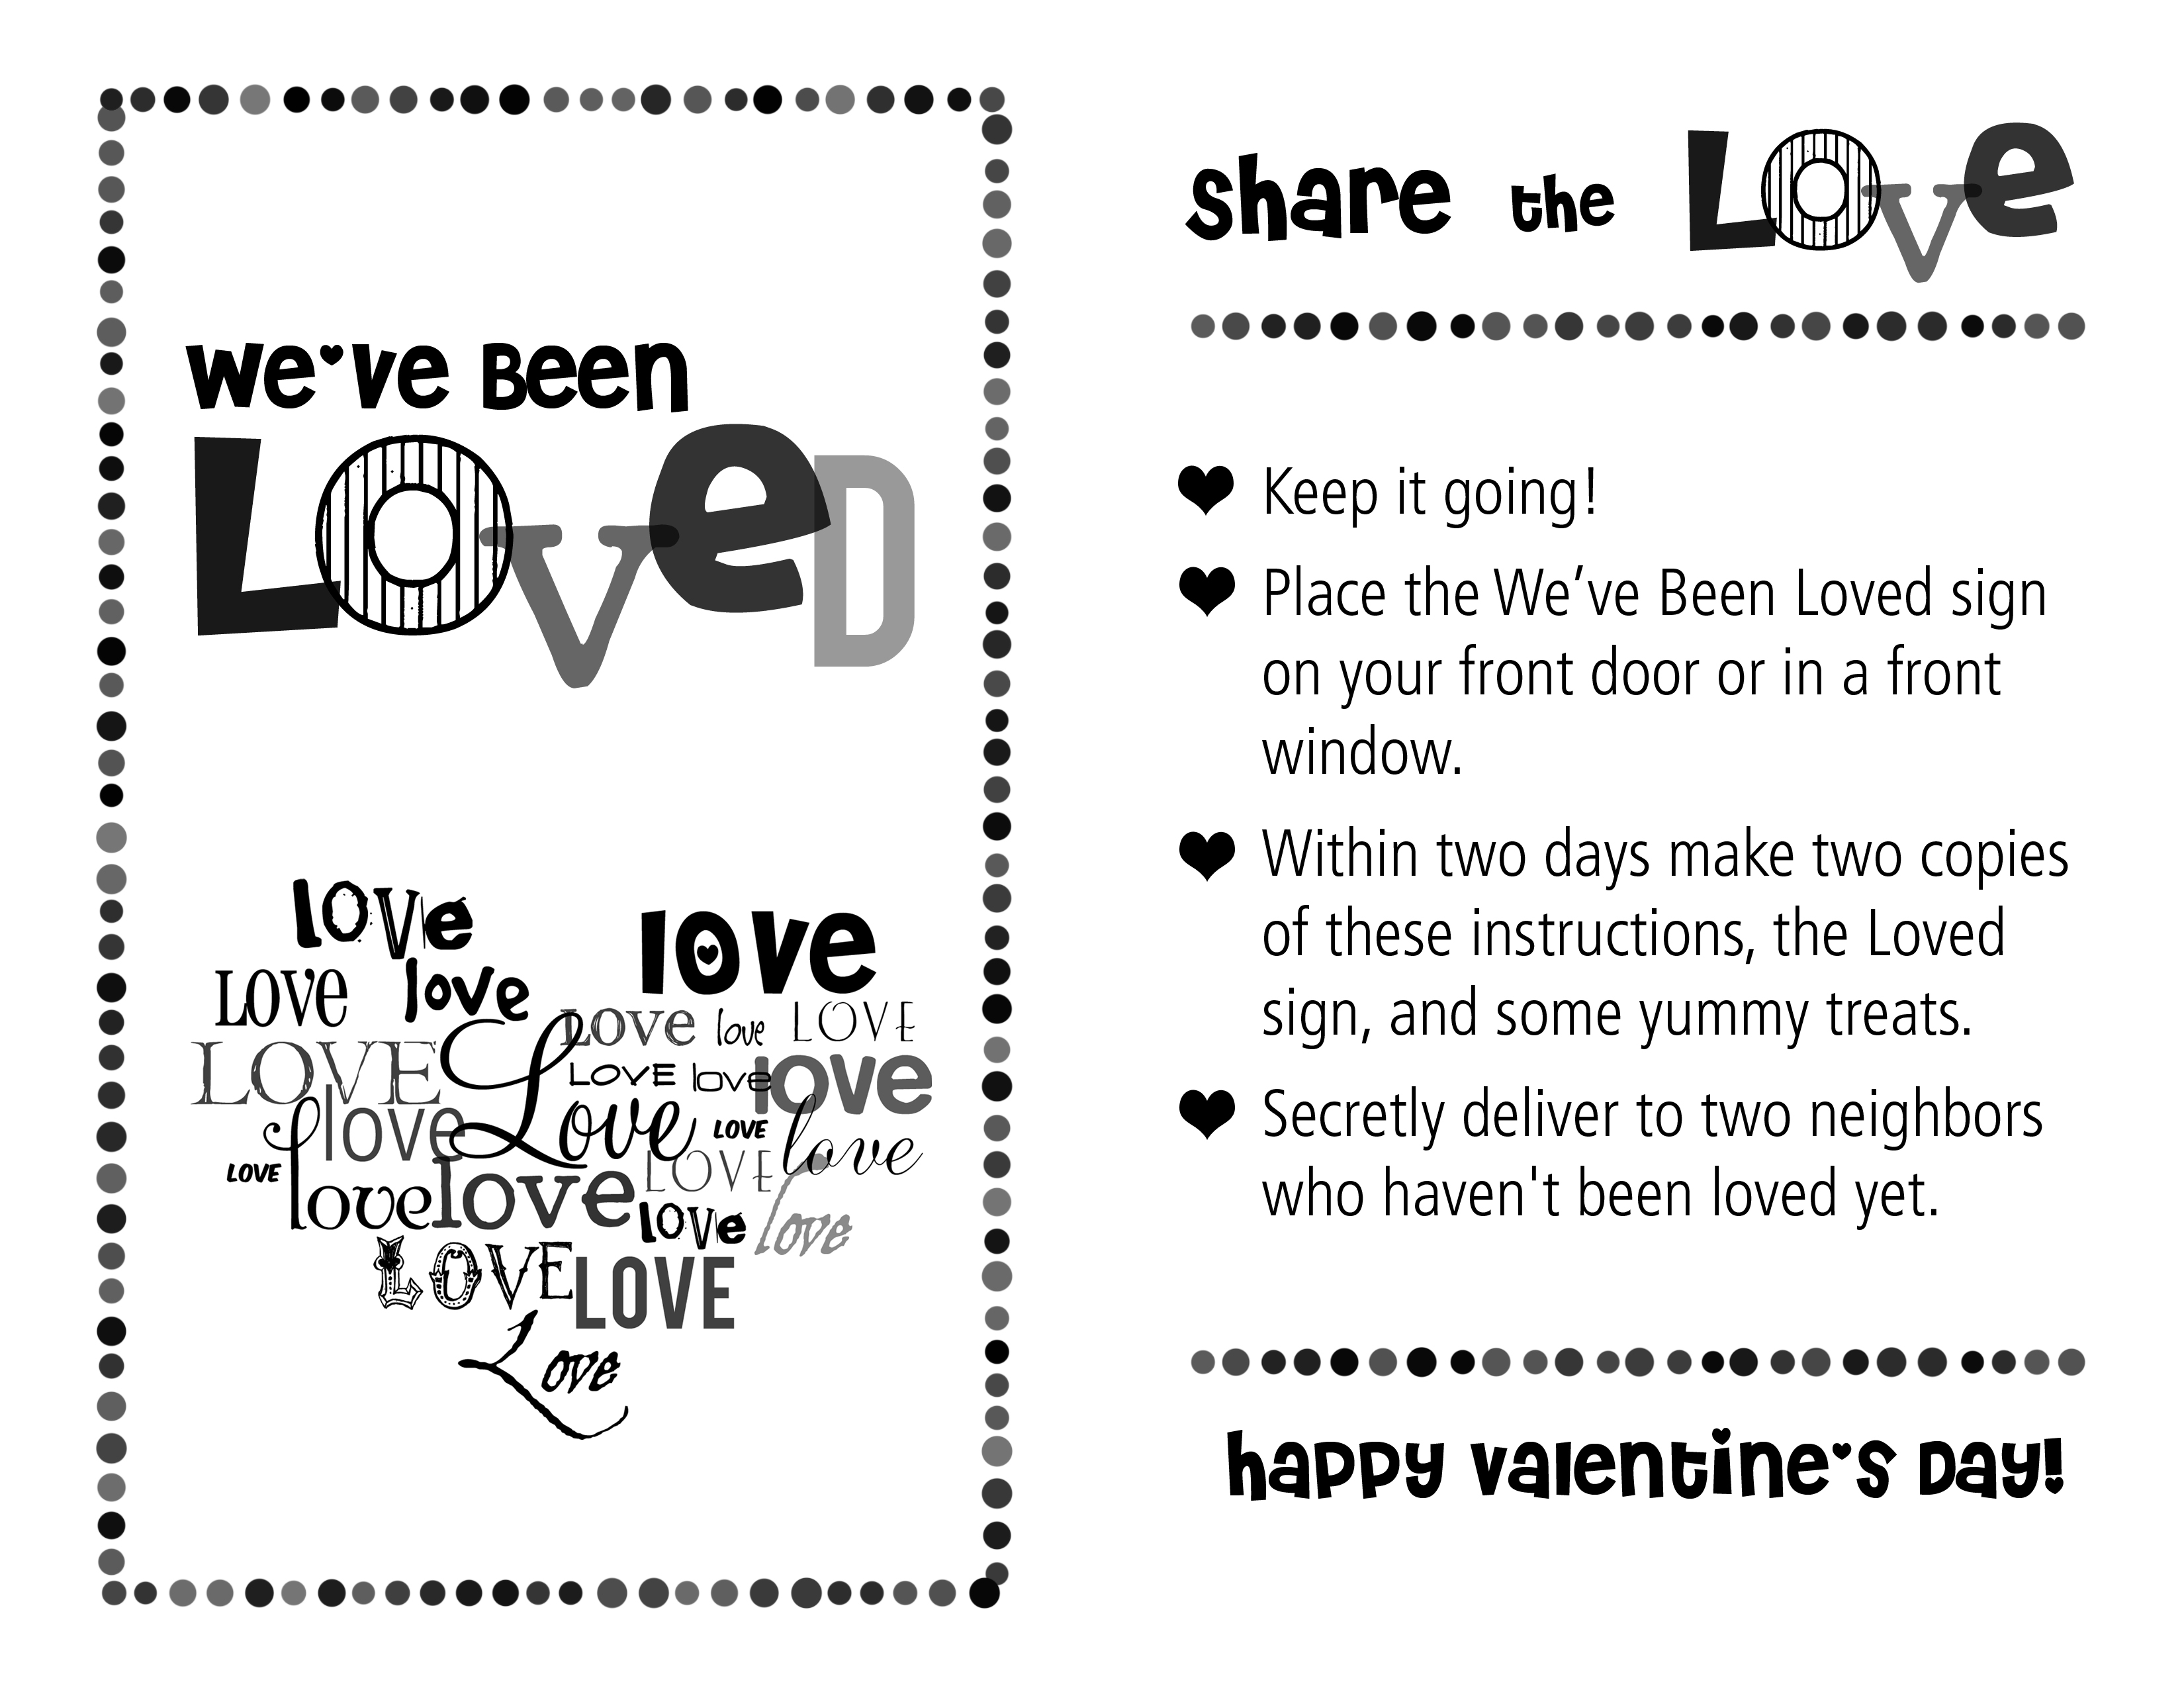 We've Been
LoveD
love
love
Love
love
Love
love
LOVE
LOVE
Love
LOVE
love
love
love
LOVE
love
LOVE
LOVE
love
love
love
love
LOVE
LOVE
Love
share the Love
Keep it going!
Place the We’ve Been Loved sign
on your front door or in a front
window.
Within two days make two copies
of these instructions, the Loved
sign, and some yummy treats.
Secretly deliver to two neighbors
who haven't been loved yet.
happy valentine's Day!